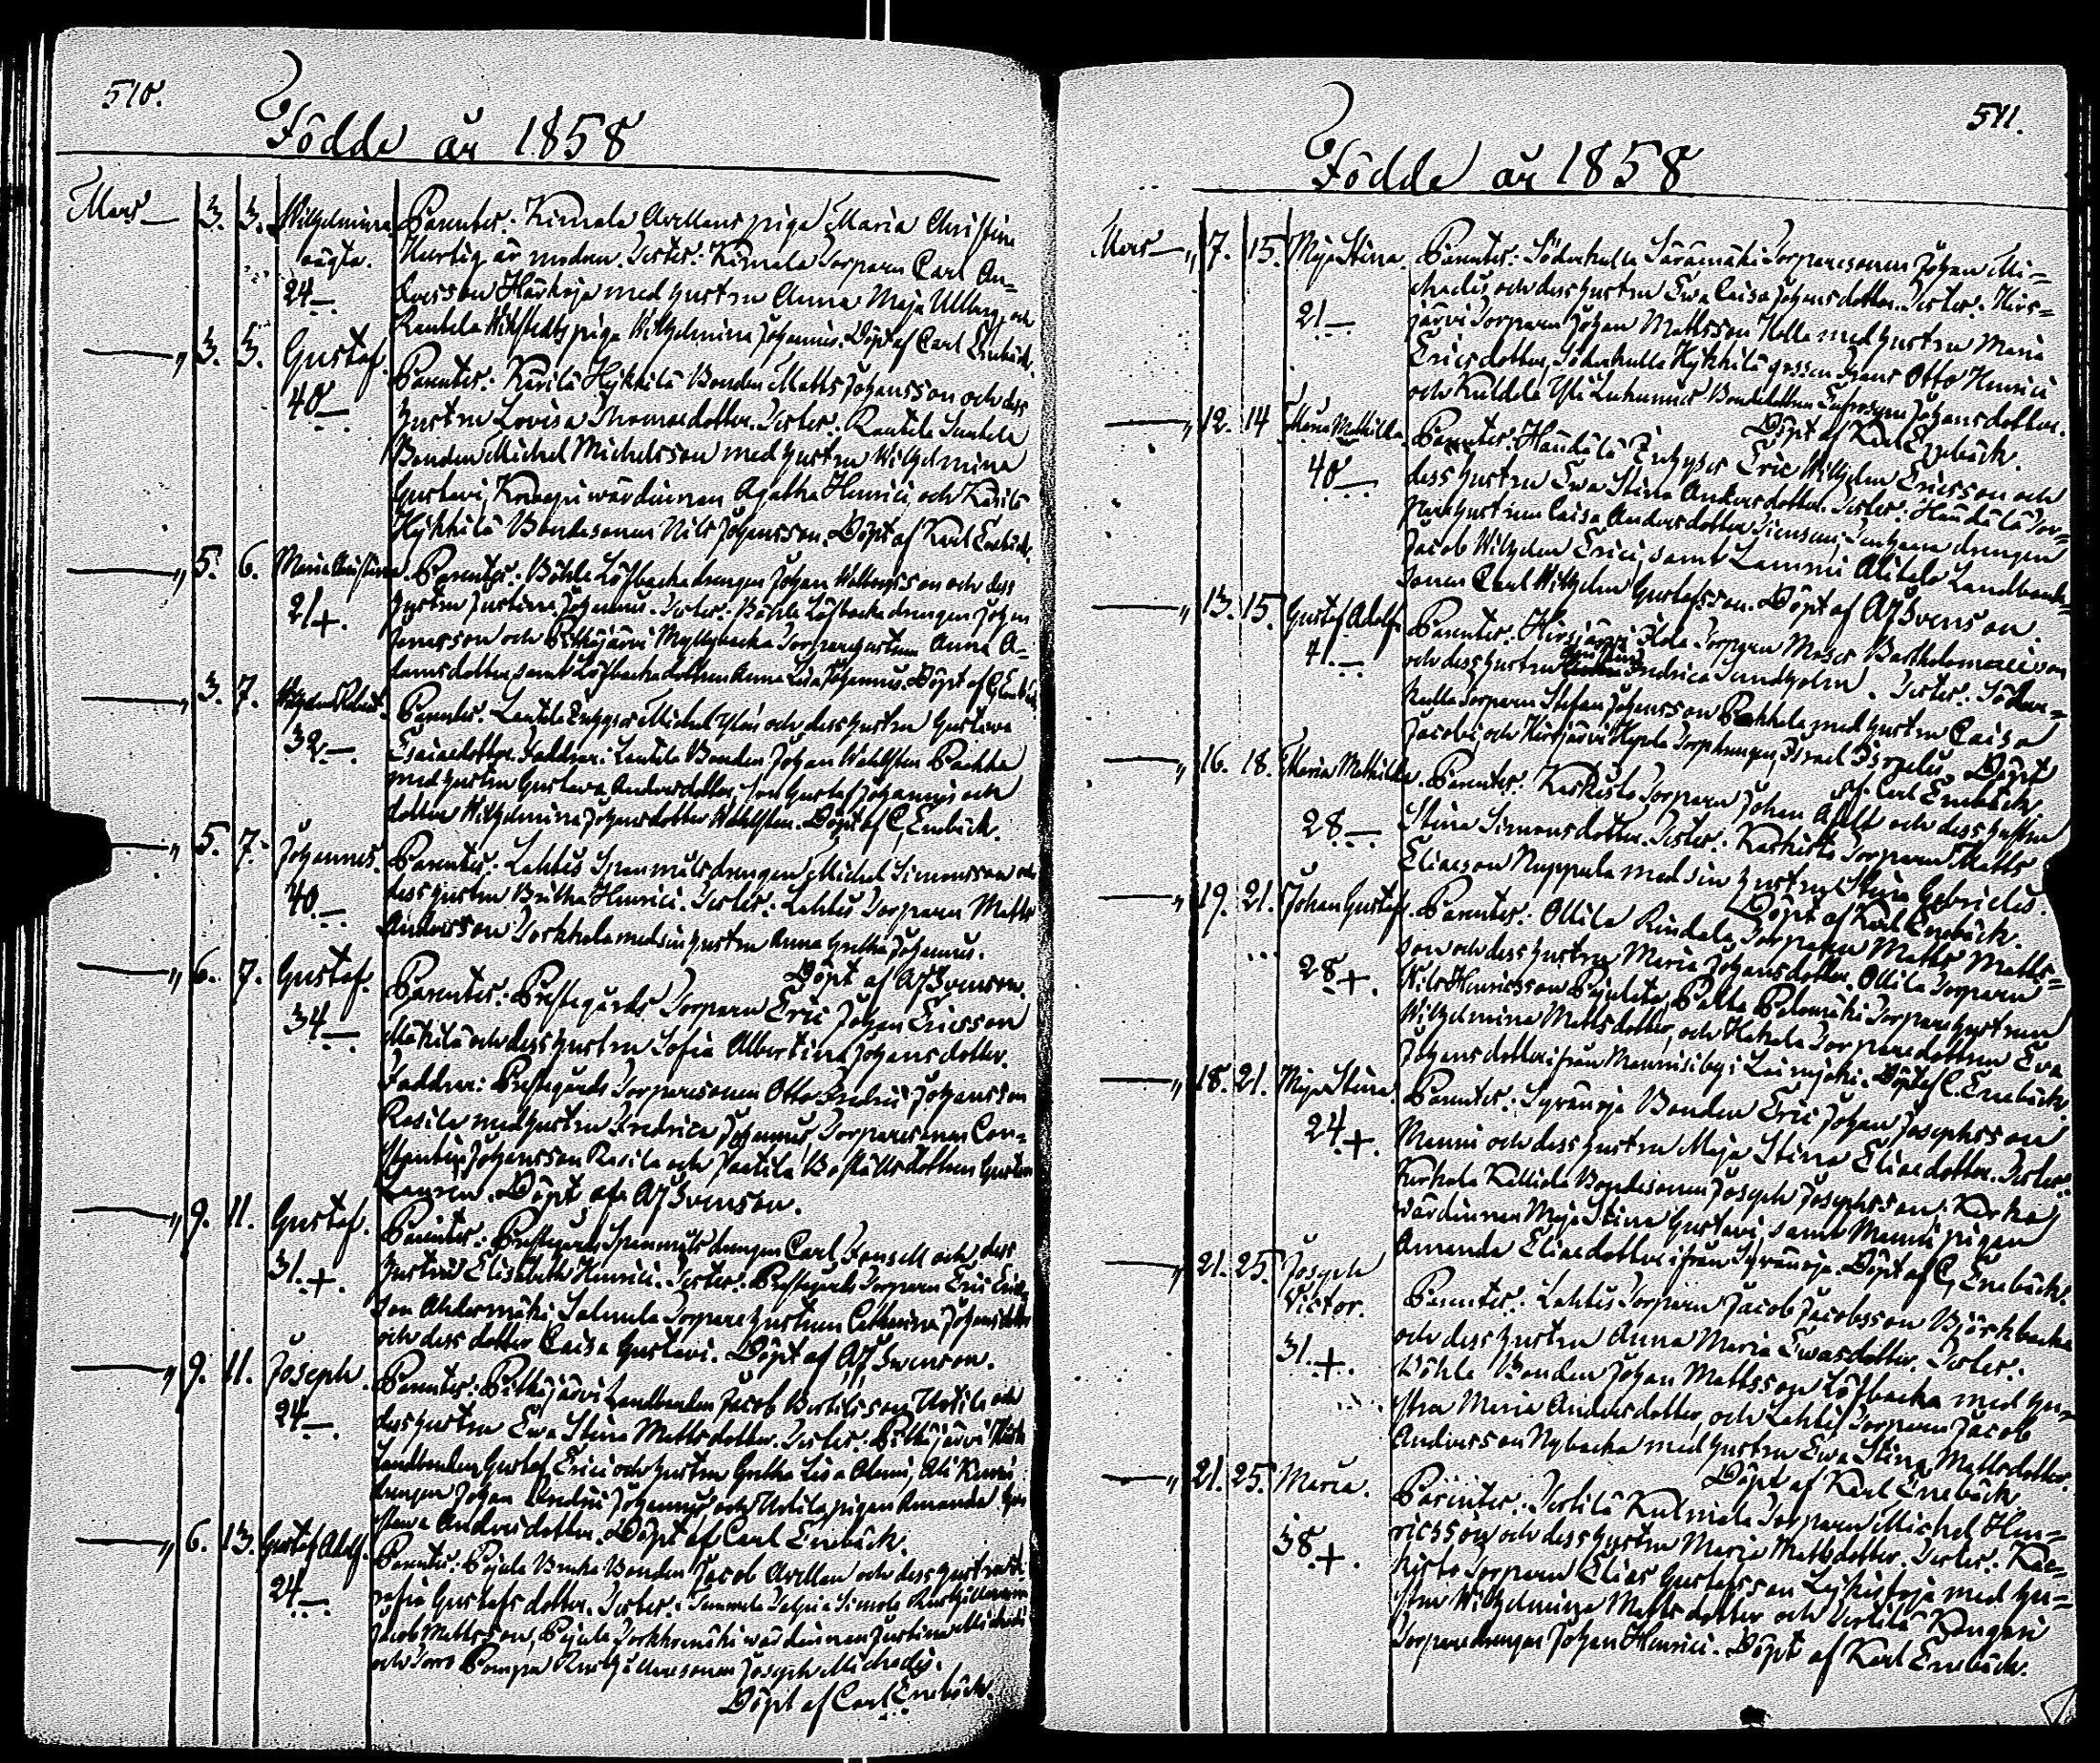 510.
Födde år 1858
Mars — 3. 3. Wilhelmina Parentes: Kimala Avellans piga Maria Christina
oägta. Hurtig är modren. Testes: Kimala Torparen Carl An-
24— dersson Härkoja med hustru Anna Maja Ullberg, och
Rantala piga Wilhelmina Johannis. Döpt af Carl Enebäck.
— „ 3. 5. Gustaf.
40— Parentes: Karilä Hykkilä Bonden Matts Johansson och dess
hustru Lovisa Thomasdotter. Testes: Rantala
Bonden Michel Michelsson med hustru Wilhelmina
Gustavi, wärdinnan Agatha Henrici och Karilä
Hykkilä Bondesonen Nils Johansson. Döpt af Karl Enebäck.
— „ 5. 6. Maria Christina. Parentes: Böhle Löfbacka drengen Johan och dess
21+. hustru Justina Johannis. Testes: Böhle Löfbacka drengen Johan
och Pitkäjärvi Myllybacka Torparehustrun Anna A-
damsdotter, samt Löfbacka dottren Anna Lisa Johannis. Döpt af C. Enebäck.
— „ 3. 7.
32.— Parentes: Lautela Inhyses Michel och dess hustru Gustava
Esaiaedotter. Faddrar: Lautela Bonden Johan Wahlsten
med hustru Gustava Andersdotter, son Gustaf Johannis och
dotter Wilhelmina Johansdotter Wahlsten. Döpt af C. Enebäck.
— „ 5. 7. Johannes. Parentes: Lahtis Spanmålsdrengen Michel Simonsson och
40.— dess hustru Britha Henrici. Testes: Lahtis Torparen Matts
Andersson Torkkola med sin hustru Anna Gretha Johannis.
Döpt af AJSvenson.
— „ 6. 7. Gustaf. Parentes: Prestegårds Torparen Eric Johan Ericsson
34— Mäkilä och dess hustru Sofia Albertina Johansdotter.
Faddrar: Prestegårds Torparesonen Otto Fredric Johansson
Rasila med hustru Fredrica Johannis, Torparesonen Con-
stantin Johansson Rasila och Jaatila Boställsdottren Gustava
Lauren. Döpt af AJSvenson.
— „ 9. 11. Gustaf. Parentes: Prestegårds Spanmålsdrengen Carl och dess
31.+ hustru Elisabeth Henrici. Testes: Prestegårds Torparen Eric Erics-
son Torparehustrun Catharina Johansdotter
och dess dotter Caisa Gustavi. Döpt af AJSvenson.
— „ 9. 11. Joseph. Parentes: Pitkäjärvi Landbonden Jacob Bertilsson Uotila och
24— dess hustru Ewa Stina Mattsdotter. Testes: Pitkäjärvi
Landbonden Gustaf Erici och hustru Gretha Lisa Adami,
drengen Johan Fredric Johannis och Uotila pigan Amanda Gu-
stava Andersdotter. Döpt af Carl Enebäck.
— „ 6. 13. Gustaf Adolf. Parentes: Pajula Bonden Jacob Avellan och dess hustru
24— Gustafsdotter. Testes:
Jacob Mattsson, Pajula Torkkomäki wärdinnan Justina Michaelis
och Joseph Michaelis.
Döpt af Carl Enebäck.
511.
Födde år 1858
Mars — „ 7. 15. Maja Stina. Parentes: Söderkulla Säräumäki Torparesonen Johan Mi-
21— chaelis och dess hustru Ewa Caisa Johansdotter. Testes: Hirs-
järvi Torparen Johan Mattsson Kolla med hustru Maria
Ericsdotter, Söderkulla Hykkilä gossen Frans Otto Henrici
och Kuldala Bondedottren Eufrosyne Johansdotter.
Döpt af Karl Enebäck.
— „ 12. 14 Maria Mathilda.
40— Parentes: Handälä Inhyses Eric Wilhelm Ericsson och
dess hustru Ewa Stina Andersdotter. Testes: Handälä Tor-
parehustrun Caisa Andersdotter drengen
Jacob Wilhelm Erici, samt Lammi Alitalo Landbonde-
sonen Carl Wilhelm Gustafsson. Döpt af AJSvenson.
— „ 13. 15. Gustaf Adolf.
41.— Parentes: Hirsjärvi Torparen Moses Bartholomaeison
och dess hustru Fredrica Sundholm. Testes: Söder-
kulla Torparen Stefan Johansson med hustru Caisa
Jacobi, och Hirsjärvi Torpdrengen, Israel Israelis. Döpt
af Carl Enebäck.
— „ 16. 18. Maria Mathilda. Parentes: Kaskisto Torparen Johan och dess hustru
28.— Stina Simonsdotter. Testes: Kaskisto Torparen Matts
Eliaeson Nuppula med sin hustru Stina Gabrielis.
Döpt af Karl Enebäck.
— „ 19. 21. Johan Gustaf. Parentes: Ollila Torparen Matts Matts-
28+. son och dess hustru Maria Johansdotter. Ollila Torparen
Nils Henricsson Pajulita, Palomäki Torparehustrun
Wilhelmina Mattsdotter, och Hakala Torparedottren Eva
Johansdotter ifrån by i Loimijoki. Döpt af C. Enebäck.
— „ 18. 21. Maja Stina. Parentes: Syvänoja Bonden Eric Johan Josephsson
24+. Manni och dess hustru Maja Stina Eliaedotter. Testes:
Kerkola Bondesonen Joseph Josephsson, Kerkola
wärdinnan Maja Stina Gustavi, samt Manni pigan
Amanda Eliaedotter ifrån Syvänoja. Döpt af C. Enebäck.
— „ 21. 25. Joseph
Victor. Parentes: Lahtis Torparen Jacob Jacobsson Björkbacka
31.+. och dess hustru Anna Maria Ewasdotter. Testes:
Böhle Bonden Johan Mattsson Löfbacka med hu-
stru Maria Andersdotter, och Lahtis Torparen Jacob
Andersson Nybacka med hustru Ewa Stina Mattsdotter.
Döpt af Karl Enebäck.
— „ 21. 25. Maria. Parentes: Kulmala Torparen Michel Hen-
38.+. ricsson och dess hustru Maria Mattsdotter. Testes: Kas-
kisto Torparen Elias Gustafsson med hu-
stru Wilhelmina Mattsdotter och
Torparedrengen Johan Henrici. Döpt af Karl Enebäck.